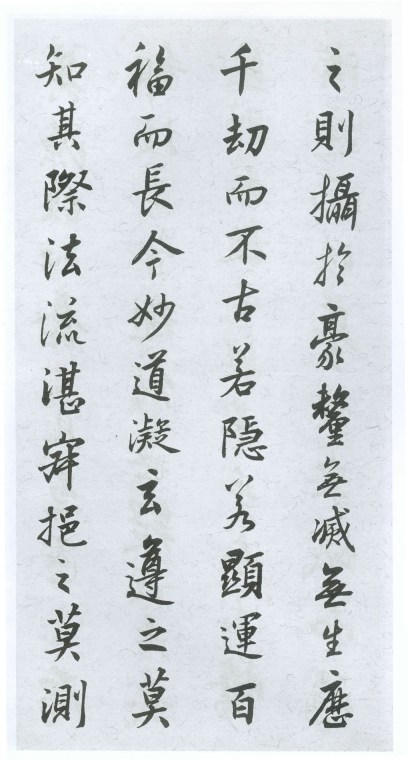 之則攝於豪氂無滅無生歷
千劫而不古若隱若顯運百
福而長今妙道凝玄遵之莫
知其際法流湛寂挹之莫測